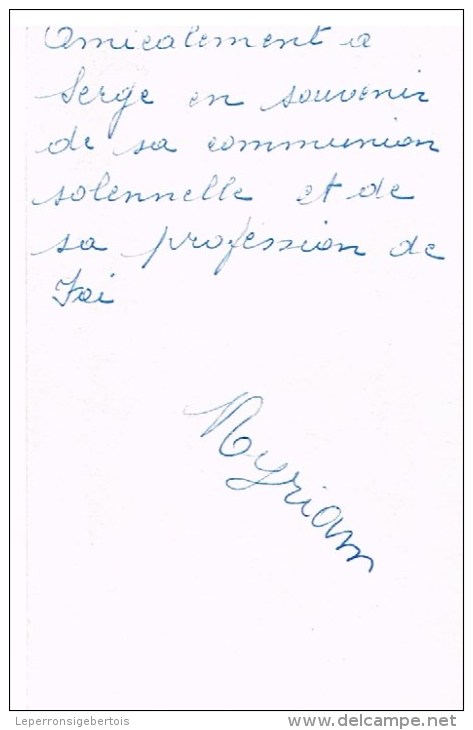 Amicalement a
Serge en souvenir
de sa communion
solennelle et de
sa profession de
Foi
Myriam
Leperronsigebertois
www.delcampe.net